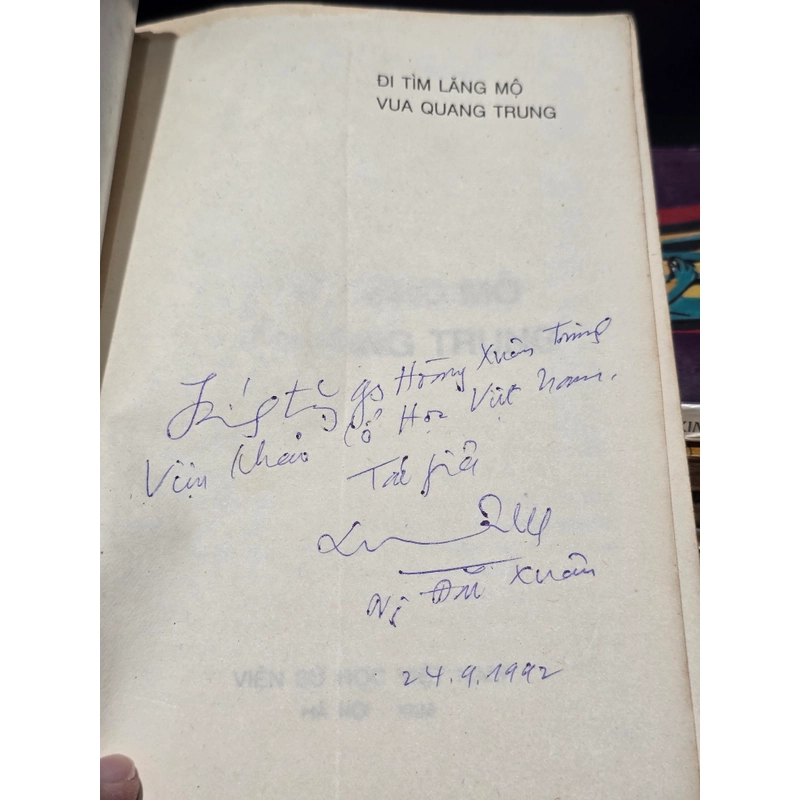 ĐI TÌM LĂNG MỘ
VUA QUANG TRUNG
Kính tặng gs Hoàng Xuân Trinh
Viện Khảo Cổ Học Việt Nam.
Tác giả
Ng Đắc Xuân
24.9.1992
VIỆN SỬ HỌC